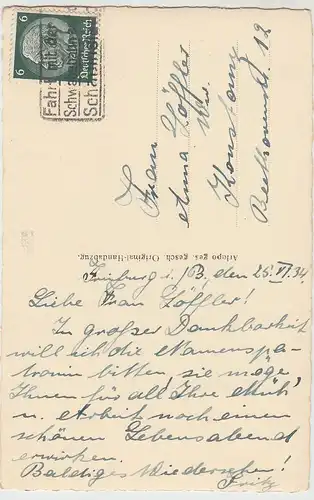 6
6
Deutsches Reich
Frau
Anna Löffler
Ww.
Konstanz
Beethovenstr. 12
Arlopo ges. gesch. Original-Handabzug.
Freiburg i. B. den 25. VI. 34.
Liebe Frau Löffler!
In großer Dankbarkeit
will ich die Namenspa-
tronin bitten, sie möge
Ihnen für all Ihre Müh'
u. Arbeit noch einen
schönen Lebensabend
erwirken.
Baldiges Wiedersehen!
Fritz